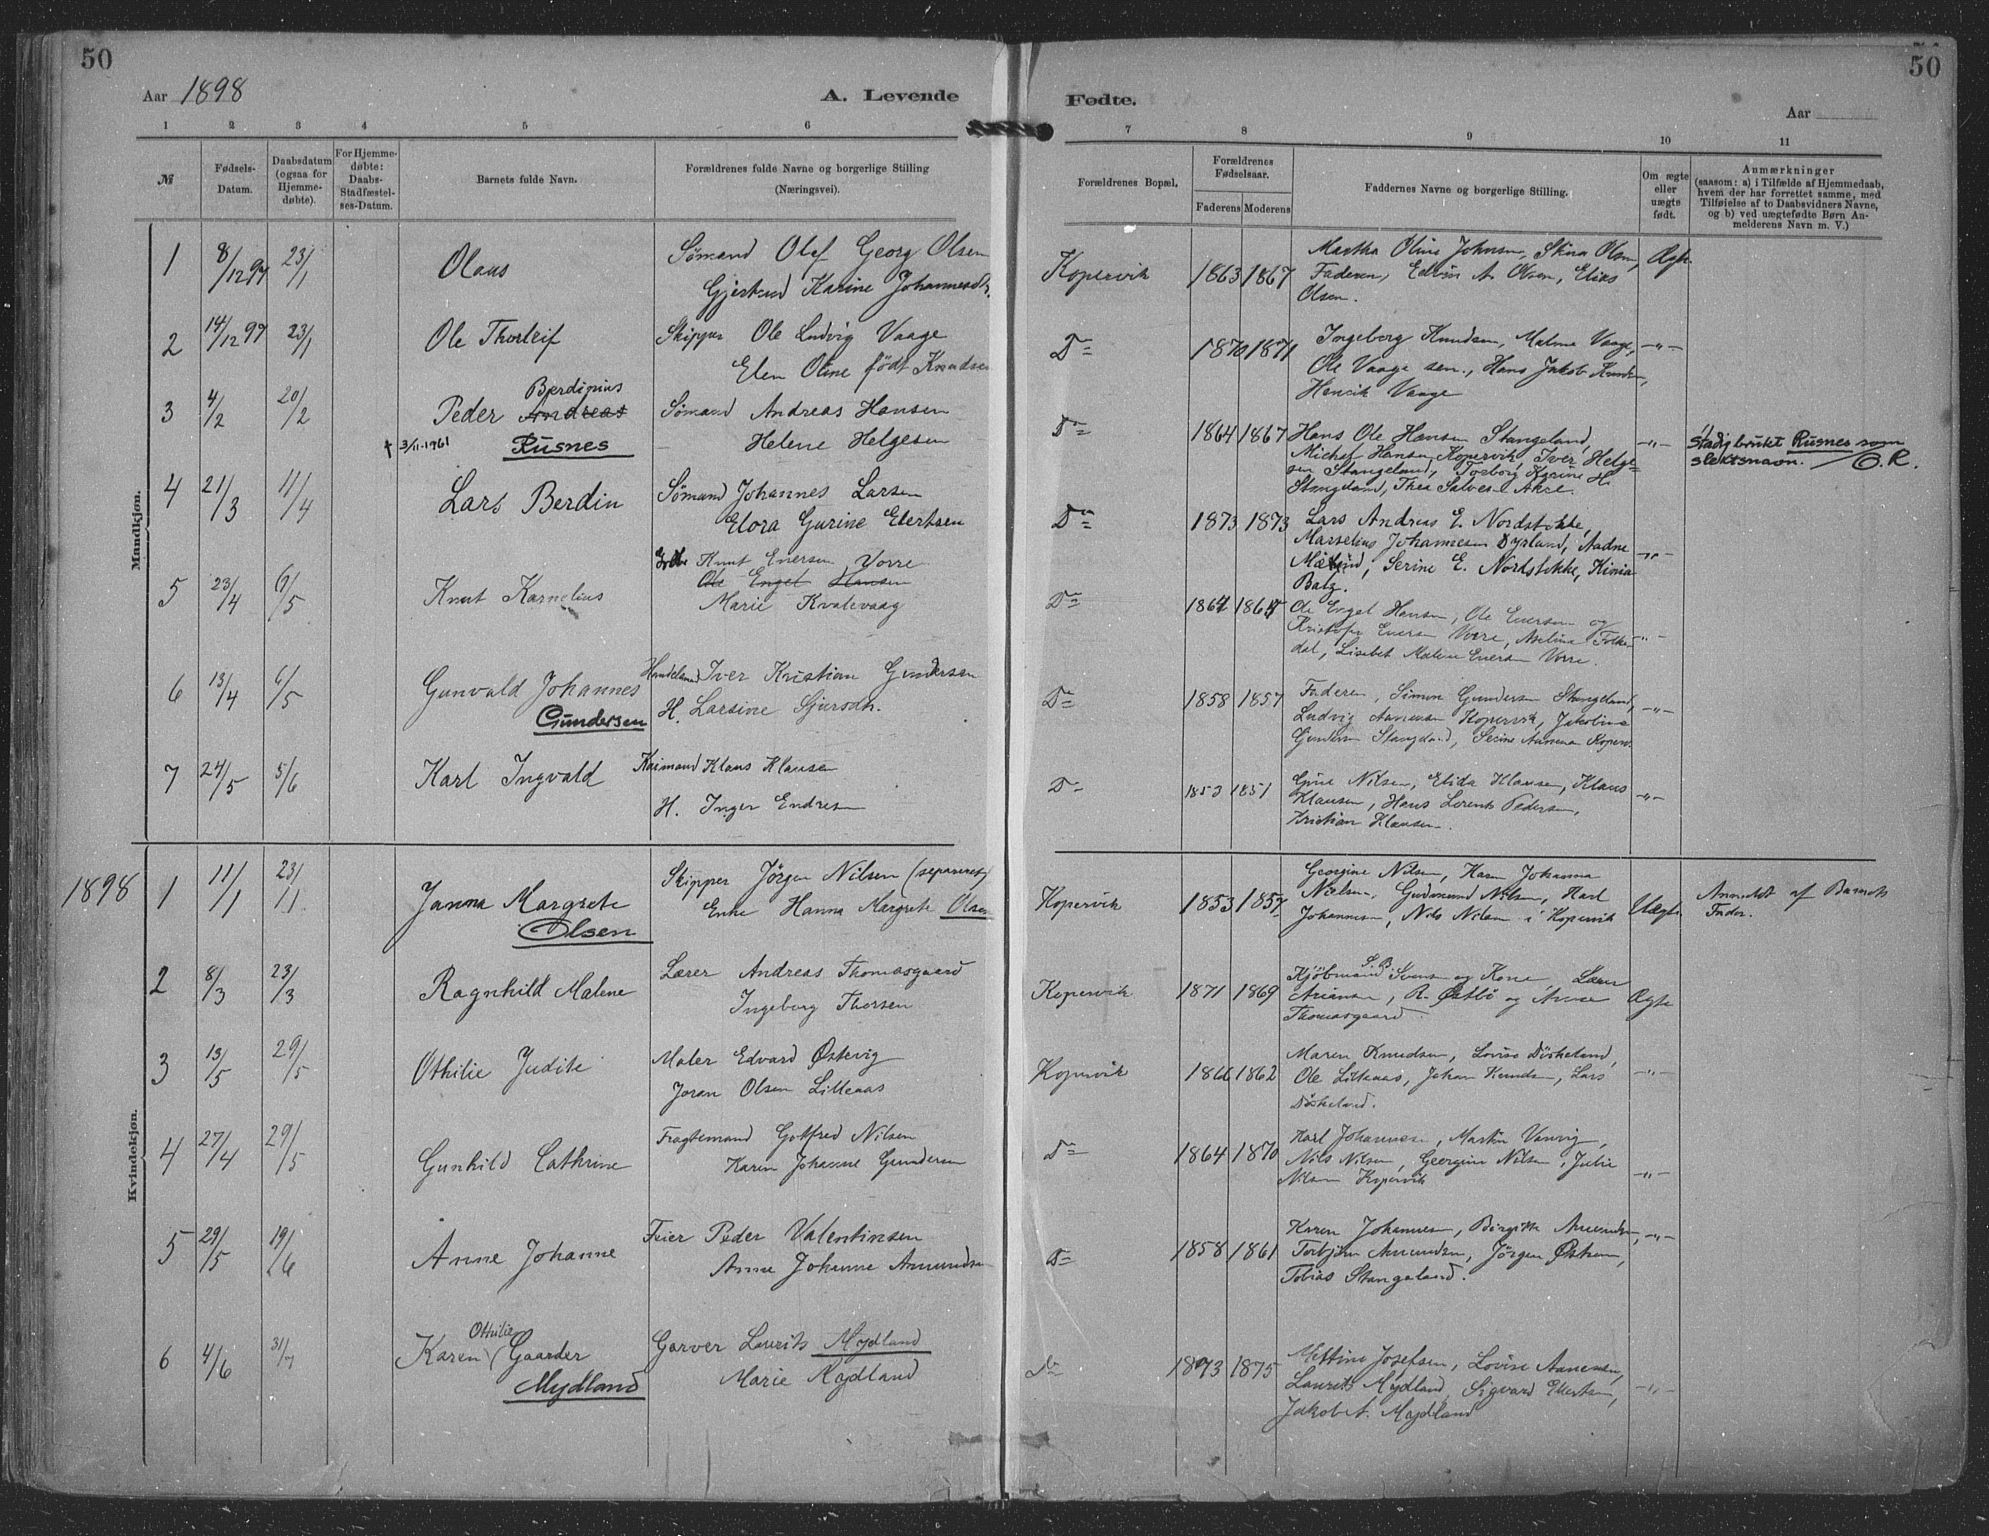 50
Aar 1898
A. Levende
1 2 3 4 5 6
№
Fødsels-
Datum.
Daabsdatum
(ogsaa for
Hjemme-
døbte).
For Hjemme-
døbte:
Daabs-
Stadfæstel-
ses-Datum.
Barnets fulde Navn.
Forældrenes fulde Navne og borgerlige Stilling
(Næringsvei).
Mandkjøn.
1 8/12 97 23/1 Olaus
Sømand Olaf Georg Olsen
Gjertrud Karine Johannesdtr.
2 14/12 97 23/1 Ole Thorleif
Skipper Ole Ludvig Vaage
Elen Oline født Knudsen
3 4/2 20/2 Peder Andreas
Berdinius
Rusnes
† 3/11-1961
Sømand Andreas Hansen
Helene Helgesen
4 21/3 11/4 Lars Berdin
Sømand Johannes Larsen
Elora Gurine Elertsen
5 23/4 6/5 Knut Kornelius
Knut Eversen Vorre
Ole Engel Hansen
Marie Kvalevaag
6 13/4 6/5 Gunvald Johannes
Gundersen
Handelsmd Iver Kristian Gundersen
H. Larsine Sjursdtr.
7 24/5 5/6 Karl Ingvald
Klaus Klausen
H. Inger Endresen
1898
Kvindekjøn.
1 11/1 23/1 Janna Margrete
Olsen
Skipper Jørgen Nilsen (separeret)
Enke Hanna Margrete Olsen
2 8/3 23/3 Ragnhild Malene
Lærer Andreas Thomasgaard
Ingeborg Thorsen
3 13/5 29/5 Othilie Judite
Maler Edvard Østevig
Joran Olsen Litleaas
4 27/4 29/5 Gunhild Cathrine
Fragtemand Gotfred Nilsen
Karen Johanne Gundersen
5 29/5 19/6 Anne Johanne
Feier Peder Valentinsen
Anne Johanne Amundsen
6 4/6 31/7 Karen Gaarder
Othilie
Mydland
Garver Laurits Mydland
Marie Rydland
50
Fødte.
Aar
7 8 9 10 11
Forældrenes Bopæl.
Forældrenes
Fødselsaar.
Faderens Moderens
Faddernes Navne og borgerlige Stilling.
Om ægte
eller
uægte
født.
Anmærkninger
(saasom: a) i Tilfælde af Hjemmedaab,
hvem der har forrettet samme, med
Tilføielse af to Daabsvidners Navne,
og b) ved uægtefødte Børn An-
melderens Navn m. V.)
Kopervik 1863 1867
Martha Oline Johnsen, Stina Olsen,
Faderen, Edvin A. Olsen, Elias
Olsen.
Ægte
Do 1870 1871
Ingeborg Knudsen, Malene Vaage,
Ole Vaage sen., Hans Jakob Knudsen,
Henrik Vaage
-"-
Do 1864 1867
Hans Ole Hansen Stangeland,
Michel Hansen Kopervik, Iver Helge-
sen Stangeland, Torborg Karine H.
Stangeland, Thea Salvesen Akre.
-"-
Stadig brukt Rusnes som
slektsnavn. O.R.
Do 1873 1873
Lars Andreas E. Nordstokke,
Marselius Johannesen Dyrland, Aadne
Serine E. Nordstokke,
Batz.
-"-
Do
Ole Engel Hansen, Ole Eversen og
Kristofer Eversen Vorre, Folke-
dal, Lisebet Malene Eversen Vorre.
-"-
Do 1858 1857
Faderen, Simon Gundersen Stangeland,
Ludvig Aanensen Kopervik, Jakobine
Gundersen Stangeland, Serine Aanensen Kopervik
-"-
Do 1853 1851
Nilsen, Elida Klausen, Klaus
Klausen, Hans Lorents Pedersen,
Kristian Klausen.
-"-
Kopervik 1853 1857
Georgine Nilsen, Karen Johanna
Nielsen, Gudmund Nilsen, Karl
Johannesen, Nils Nilsen i Kopervik
Uægte
Anmeldt af Barnets
Fader.
Kopervik 1871 1869
Kjøbmand Svensen og Kone, Lærer
R. Østbø og Anna
Thomasgaard.
Ægte
Kopervik 1866 1862
Maren Knudsen, Lovise Diskeland,
Ole Litleaas, Johan Knudsen, Lars
Diskeland.
-"-
Do 1864 1870
Karl Johannesen, Martin Vanvig,
Nils Nilsen, Georgine Nilsen, Julie
Nilsen Kopervik
-"-
Do 1858 1861
Karen Johannesen, Birgitte Amundsen,
Torbjørn Amundsen, Jørgen
Tobias Stangeland.
-"-
Do 1873 1875
Mettine Josefsen, Lovise Aanensen,
Laurits Mydland, Sigvard Elertsen,
Jakob A. Mydland
-"-